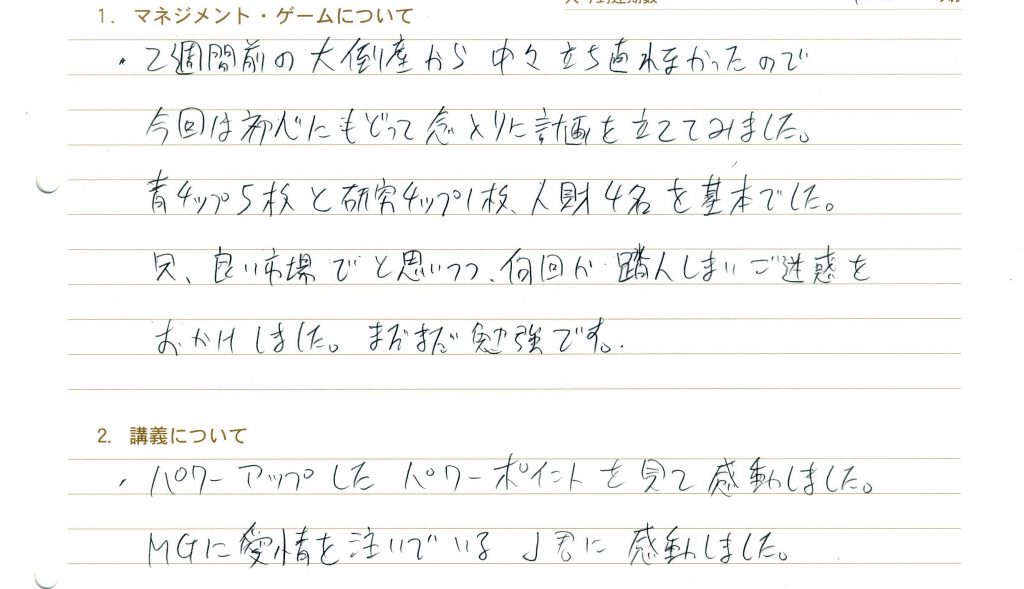 1. マネジメント・ゲームについて
・2週間前の大倒産から中々立ち直れなかったので
今回は初心にもどって念入りに計画を立ててみました。
青チップ5枚と研究チップ1枚、人財4名を基本でした。
只、良い市場でと思いつつ、何回か踏んしまいご迷惑を
おかけしました。まだまだ勉強です。
2. 講義について
・パワーアップしたパワーポイントを見て感動しました。
MGに愛情を注いでいるJ君に感動しました。